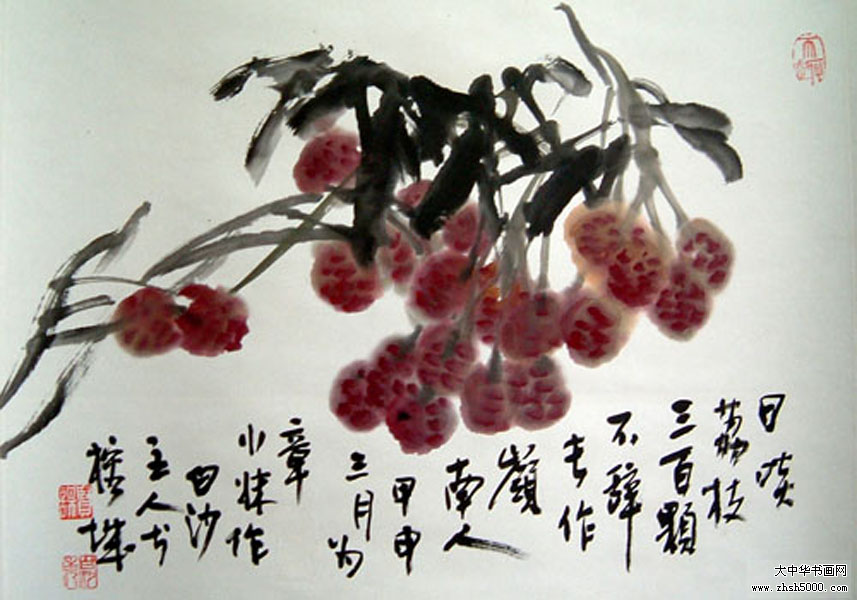 日啖
荔枝
三百顆
不辭
长作
嶺
南人
甲申
三月为
章
小妹作
白沙
主人
榕城
大中华书画网
www.zhsh5000.com